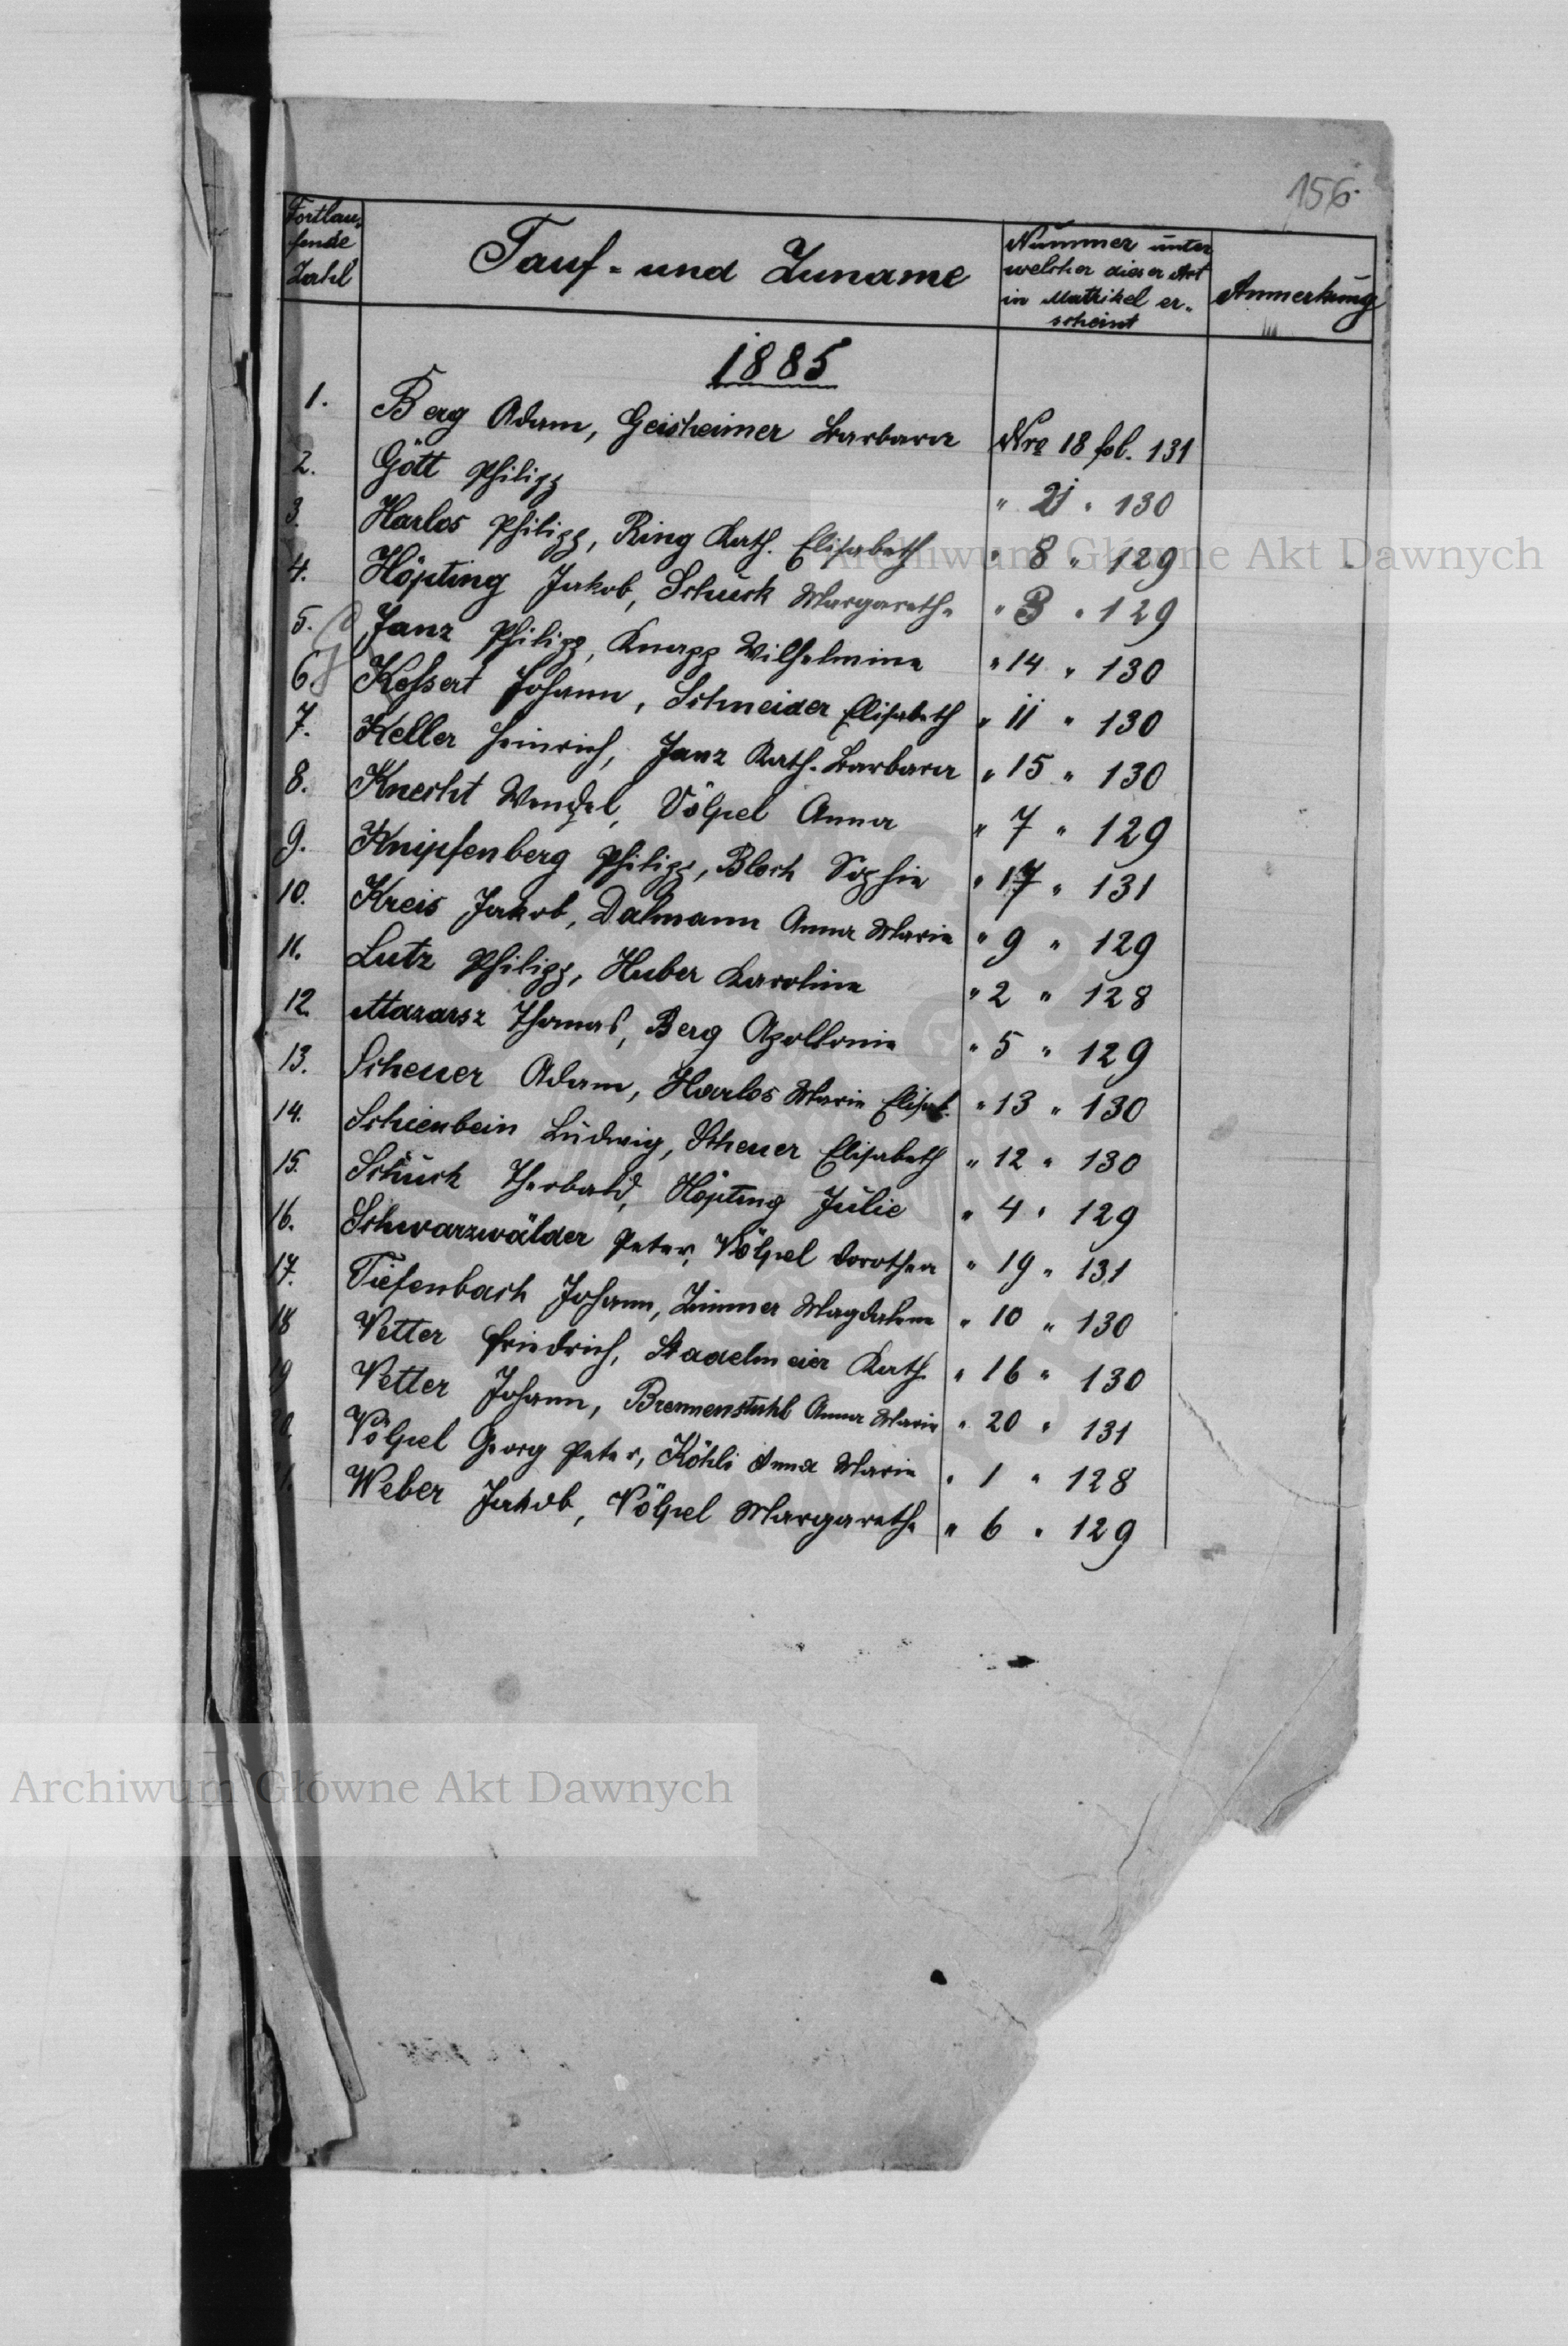 156.
Fortlau-
fende
Zahl
Tauf- und Zuname
Nummer unter
welcher dieser Act
in Matrikel er-
scheint
Anmerkung
1885
1. Berg Adam, Geisheimer Barbara Nro 18 fol. 131
2. Gött Philipp " 21 " 130
3. Harlos Philipp, Ring Kath. Elisabeth " 8 " 129
4. Höpting Jakob, Schück Margarethe " 3 " 129
5. Janz Philipp, Knapp Wilhelmine " 14 " 130
6. Kessert Johann, Schneider Elisabeth " 11 " 130
7. Keller Heinrich, Janz Kath. Barbara " 15 " 130
8. Knecht Wendel, Völpel Anna " 7 " 129
9. Knipfenberg Philipp, Bloch Sophie " 17 " 131
10. Kreis Jakob, Dalmann Anna Marie " 9 " 129
11. Lutz Philipp, Huber Karoline " 2 " 128
12. Mazarsz Thomas, Berg Apollonia " 5 " 129
13. Scheuer Adam, Harlos Marie Elisab. " 13 " 130
14. Schienbein Ludwig, Scheuer Elisabeth " 12 " 130
15. Schück Theobald, Höpting Julie " 4 " 129
16. Schwarzwälder Peter, Völpel Dorothea " 19 " 131
17. Tiefenbach Johann, Zimmer Magdalena " 10 " 130
18 Vetter Friedrich, Stadelmeier Kath. " 16 " 130
19 Vetter Johann, Brennenstuhl Anna Marie " 20 " 131
Völpel Georg Peter, Köhli Anna Marie " 1 " 128
Weber Jakob, Völpel Margarethe " 6 " 129
Archiwum Główne Akt Dawnych
Archiwum Główne Akt Dawnych